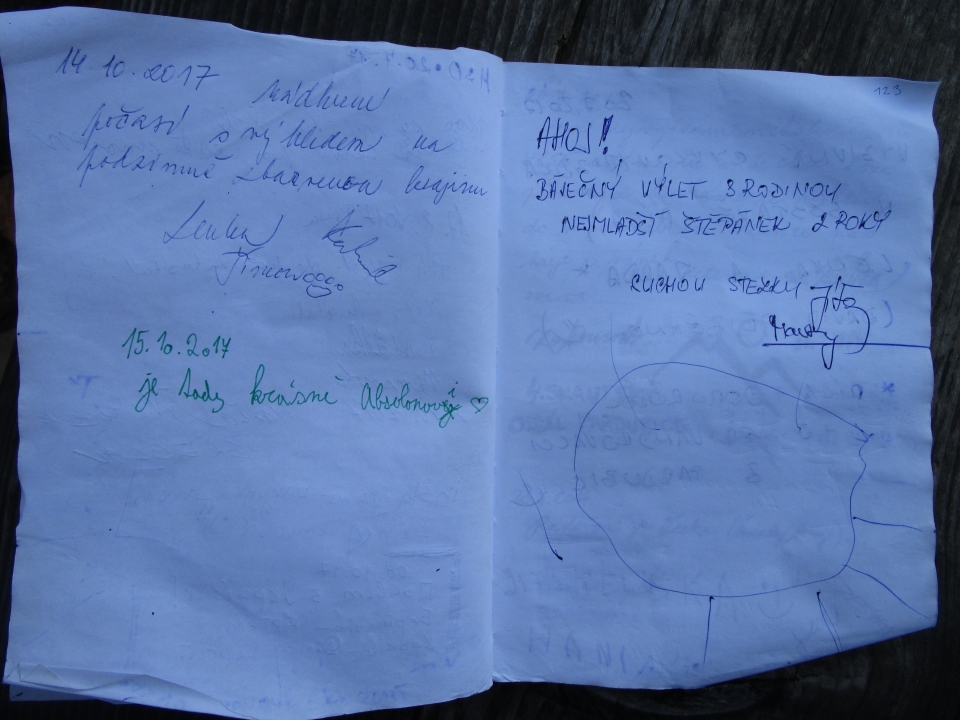 14.10.2017
nádherné
počasí s výhledem na
podzimně zbarvenou krajinu
Lenka
15.10.2017
je tady krásně Absolonovi ♡
123
AHOJ!
BÁJEČNÝ VÝLET S RODINOU
NEJMLADŠÍ ŠTĚPÁNEK 2 ROKY
RUCHOU STEZKY